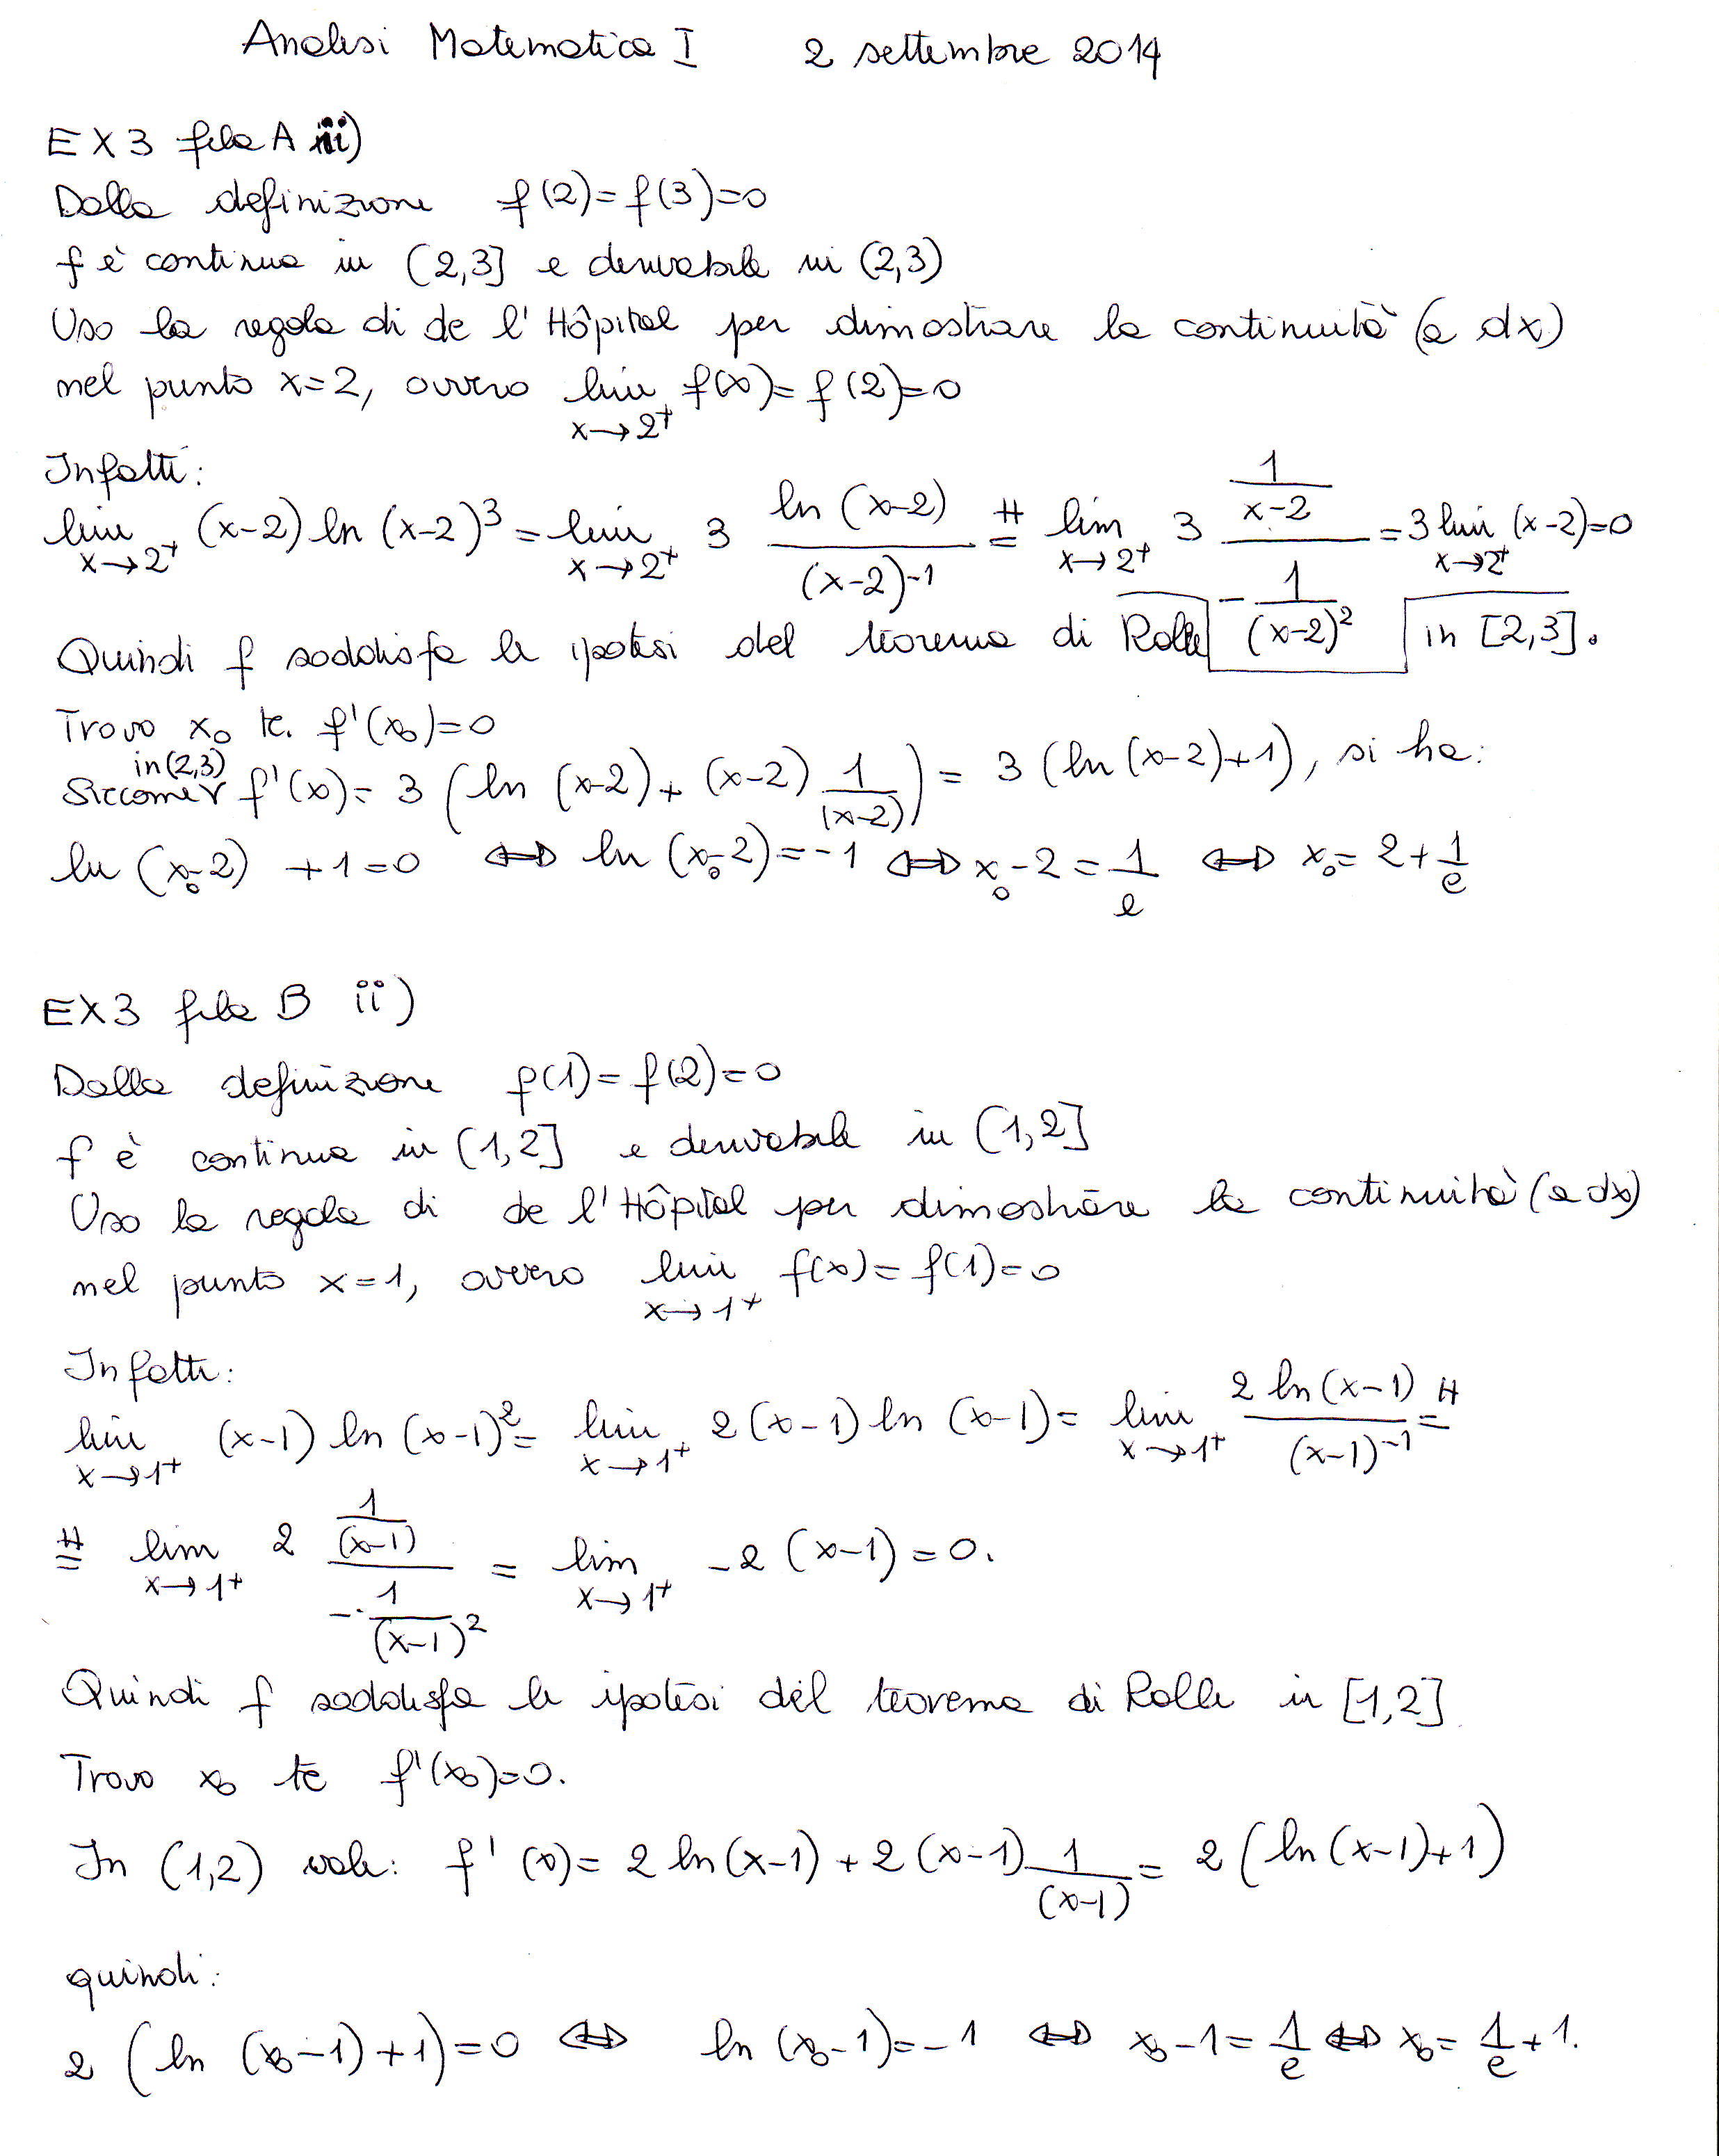 Analisi Matematica I 2 settembre 2014
EX3 fila A ii)
Dalla definizione f(2)=f(3)=0
f è continua in (2,3] e derivabile in (2,3)
Uso la regola di de l'Hôpital per dimostrare la continuità (a dx)
nel punto x=2, ovvero lim x→2⁺ f(x)=f(2)=0
Infatti:
lim x→2⁺ (x-2) ln (x-2)³ = lim x→2⁺ 3 ln(x-2) / (x-2)⁻¹ =ᴴ lim x→2⁺ 3 (1/(x-2)) / (-1/(x-2)²) = 3 lim x→2⁺ (x-2)=0
Quindi f soddisfa le ipotesi del teorema di Rolle in [2,3].
Trovo x₀ tc. f'(x₀)=0
Siccome in (2,3) f'(x)= 3 (ln (x-2) + (x-2) 1/(x-2)) = 3 (ln (x-2)+1), si ha:
ln (x₀-2) +1=0 ⇔ ln (x₀-2)=-1 ⇔ x₀-2 = 1/e ⇔ x₀= 2+1/e
EX3 fila B ii)
Dalla definizione f(1)=f(2)=0
f è continua in (1,2] e derivabile in (1,2]
Uso la regola di de l'Hôpital per dimostrare la continuità (a dx)
nel punto x=1, ovvero lim x→1⁺ f(x)=f(1)=0
Infatti:
lim x→1⁺ (x-1) ln (x-1)² = lim x→1⁺ 2(x-1) ln (x-1) = lim x→1⁺ 2 ln(x-1) / (x-1)⁻¹ =ᴴ
=ᴴ lim x→1⁺ 2 (1/(x-1)) / (-1/(x-1)²) = lim x→1⁺ -2 (x-1)=0.
Quindi f soddisfa le ipotesi del teorema di Rolle in [1,2]
Trovo x₀ tc f'(x₀)=0.
In (1,2) vale: f'(x)= 2 ln(x-1) + 2(x-1) 1/(x-1) = 2 (ln(x-1)+1)
quindi:
2 (ln (x₀-1)+1)=0 ⇔ ln (x₀-1)=-1 ⇔ x₀-1= 1/e ⇔ x₀= 1/e +1.